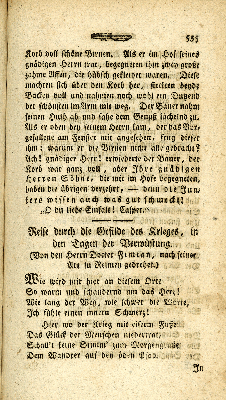 585
Korb voll schöne Birnen. Als er im Hof seines
gnädigen Herrn war, begegneten ihm zwey große
zahme Affen, die hübsch gekleidet waren. Diese
machten sich über den Korb her, steckten beyde
Backen voll und nahmen noch wohl ein Dutzend
der schönsten im Arm mit weg. Der Bauer nahm
seinen Huth ab und sahe dem Genuß lächelnd zu.
Als er oben bey seinem Herrn kam, der das
am Fenster mit angesehen, fieng dieser
ihm: warum er die Birnen nicht alle gebracht?
Ach! gnädiger Herr! erwiederte der Bauer, der
Korb war ganz voll, aber Ihre gnädigen
Herren Söhne, die mir im Hofe begegneten,
haben die übrigen verzehrt, — denn die Jun-
kers wissen auch was gut schmeckt!
„O du liebe Einfalt! Casper.
Reise durch die Gefilde des Krieges, in
den Tagen der Verwüstung.
(Von dem Herrn Doctor Fimian, nach seiner
Art in Reimen gedrehet.)
Wie wird mir hier an diesem Orte
So warm und schaudernd um das Herz!
Wie lang der Weg, wie schwer die Worte,
Ich fühle einen innern Schmerz!
Hier wo der Krieg mit eisern Fuße
Das Glück der Menschen niedertrat,
Schallt seine Stimm' zum
Dem Wandrer auf den öden Pfad.
In